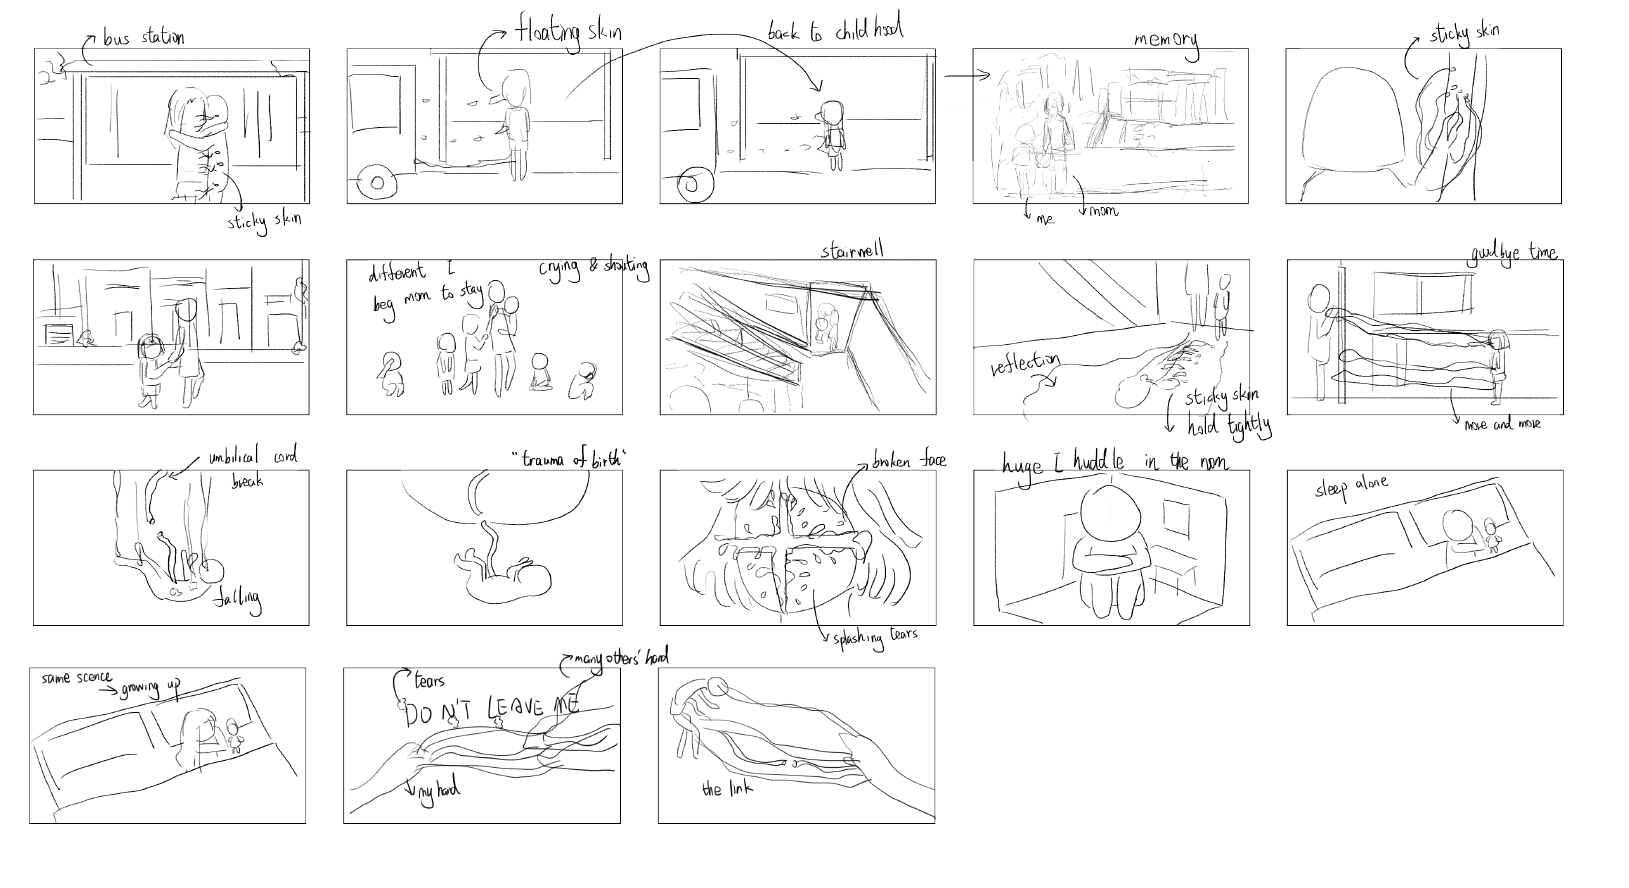 bus station
sticky skin
floating skin
back to childhood
memory
me
mom
sticky skin
different I
beg mom to stay
crying & shouting
stairwell
reflection
sticky skin
hold tightly
goodbye time
more and more
umbilical cord
break
falling
"trauma of birth"
broken face
splashing tears
huge I huddle in the room
sleep alone
same scence
growing up
tears
many others' hand
DON'T LEAVE ME
my hand
the link